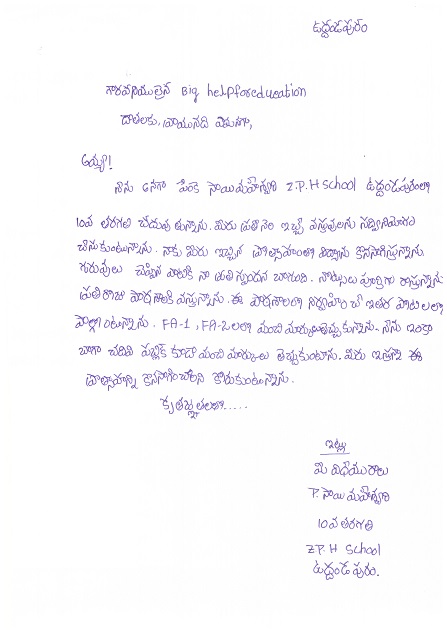 ఉద్దండపురం
గౌరవనీయులైన Big helpforeducation
దాతలకు, వ్రాయునది ఏమనగా,
అయ్యా!
నేను అనగా పెంకె సాయిమహేశ్వరి Z.P.H School ఉద్దండపురంలో
10వ తరగతి చదువుతున్నాను. మీరు ప్రతినెల ఇచ్చే వస్తువులను సద్వినియోగం
చేసుకుంటున్నాను. నాకు మీరు ఇచ్చిన ప్రోత్సాహంతో విద్యను కొనసాగిస్తున్నాను.
గురువులు చెప్పిన పాఠాలకి నా ప్రతిస్పందన బాగుంది. నోట్సులు పూర్తిగా రాస్తున్నాను
ప్రతిరోజు పాఠశాలకి వస్తున్నాను. ఈ పాఠశాలలో నిర్వహించే ఇతర పోటీలలో
పాల్గొంటున్నాను. FA-1, FA-2లలో మంచి మార్కులు తెచ్చుకున్నాను. నేను ఇంకా
బాగా చదివి పబ్లిక్ కూడా మంచి మార్కులు తెచ్చుకుంటాను. మీరు ఇస్తున్న ఈ
ప్రోత్సాహాన్ని కొనసాగించాలని కోరుకుంటున్నాను.
కృతజ్ఞతలతో.....
ఇట్లు
మీ విధేయురాలు
P. సాయి మహేశ్వరి
10వ తరగతి
Z.P.H School
ఉద్దండపురం.